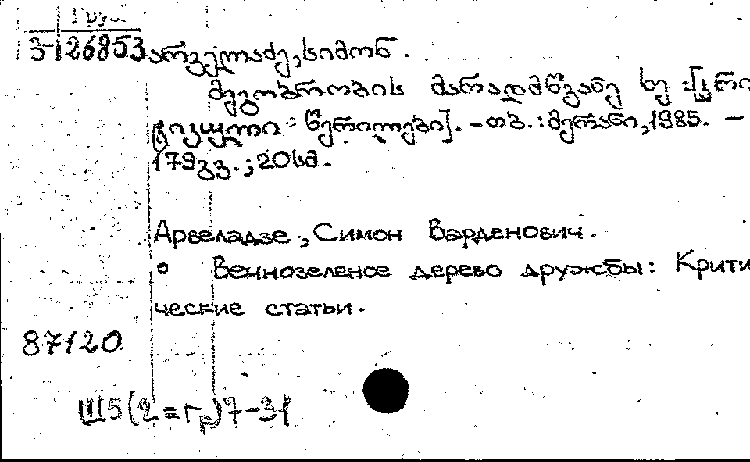 Груз.
3-126853
არველაძე, სიმონ.
მეგობრობის მარადმწვანე ხე : [კრი
ტიკული წერილები]. – თბ. : მერანი, 1985. –
179გვ. ; 20სმ.
Арвеладзе, Симон Варденович.
Вечнозеленое дерево дружбы: Крити
ческие статьи.
87120
Ш5(2=Гр)7-31